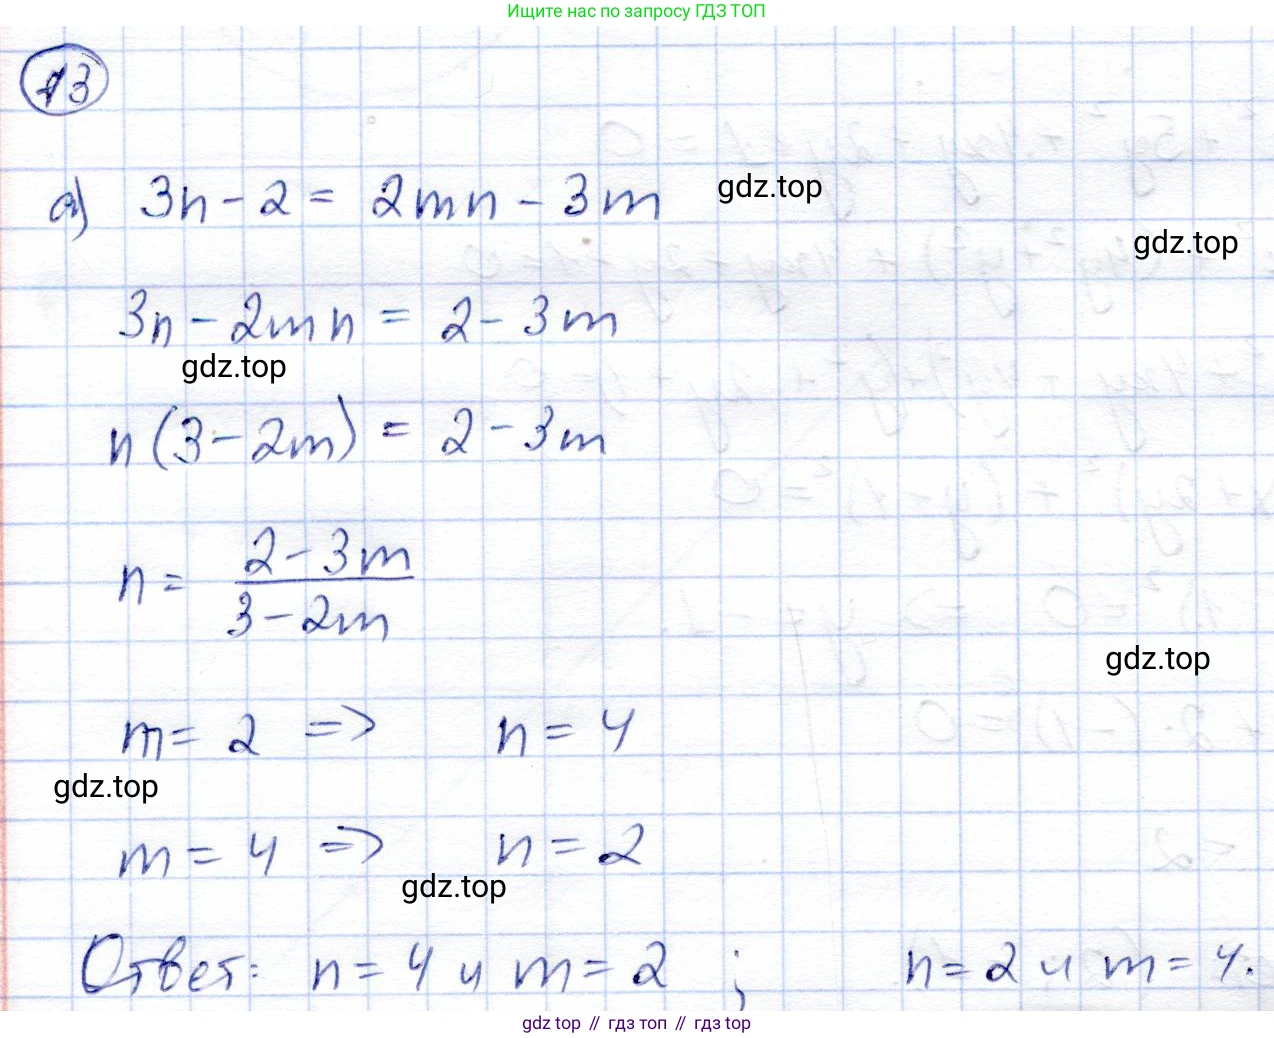 Ищите нас по запросу ГДЗ ТОП
13
а) 3n - 2 = 2mn - 3m
gdz.top
gdz.top
3n - 2mn = 2 - 3m
gdz.top
n(3 - 2m) = 2 - 3m
n = \frac{2 - 3m}{3 - 2m}
gdz.top
m = 2 => n = 4
gdz.top
m = 4 => n = 2
gdz.top
Ответ: n = 4 и m = 2 ; n = 2 и m = 4.
gdz top // гдз топ // gdz top